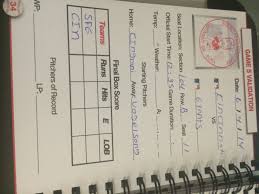 GAME 5 VALIDATION
Date: 6/4/14
VS
Giants
Seat Location: Section 104 Row B Seat 11
Official Start Time: 12:35 Game Duration:
Temp: Weather:
Starting Pitchers
Home: Away: Vogelsong
Final Box Score
Teams Runs Hits E LOB
SFG
CIN
Pitchers of Record
WP: LP:
34